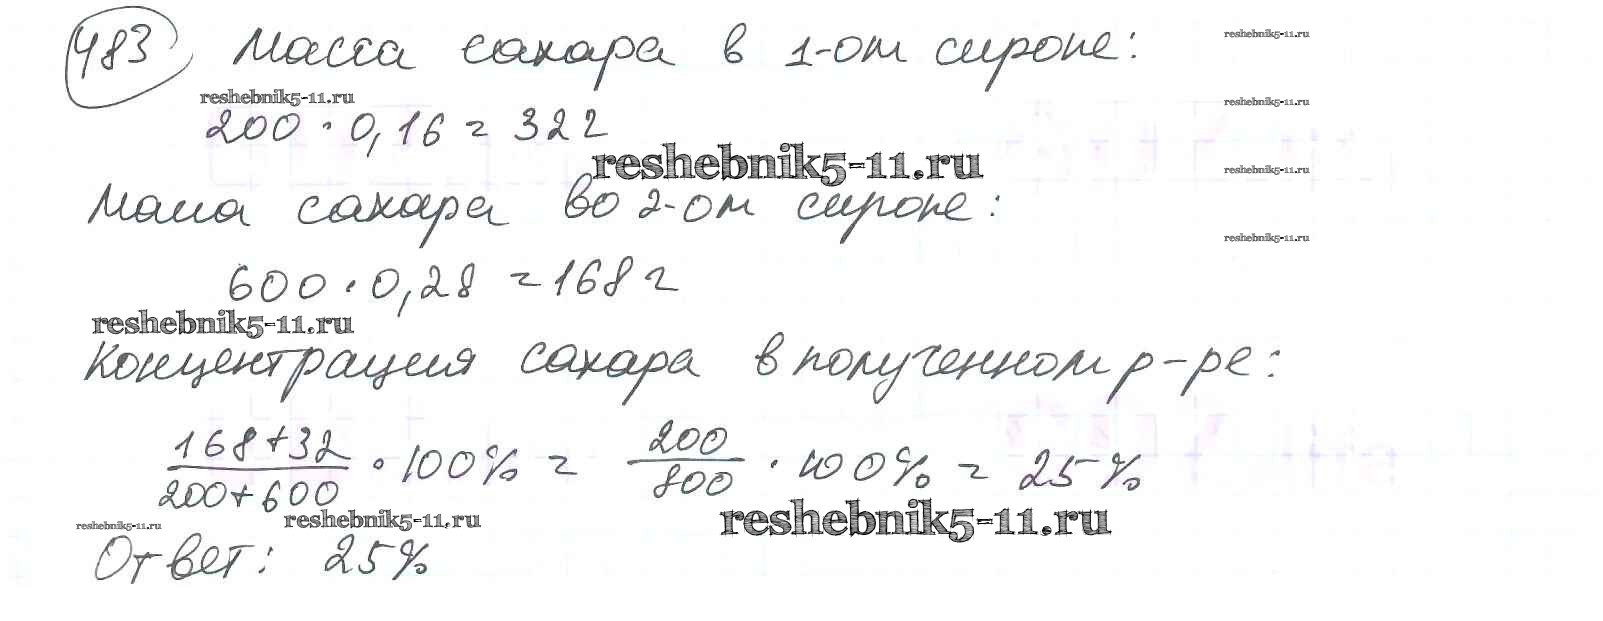 483 Масса сахара в 1-ом сиропе:
reshebnik5-11.ru
reshebnik5-11.ru
reshebnik5-11.ru
200 · 0,16 = 32 г
reshebnik5-11.ru
reshebnik5-11.ru
Масса сахара во 2-ом сиропе:
reshebnik5-11.ru
600 · 0,28 = 168 г
reshebnik5-11.ru
Концентрация сахара в полученном р-ре:
168+32 / 200+600 · 100% = 200 / 800 · 100% = 25%
reshebnik5-11.ru
reshebnik5-11.ru
reshebnik5-11.ru
Ответ: 25%